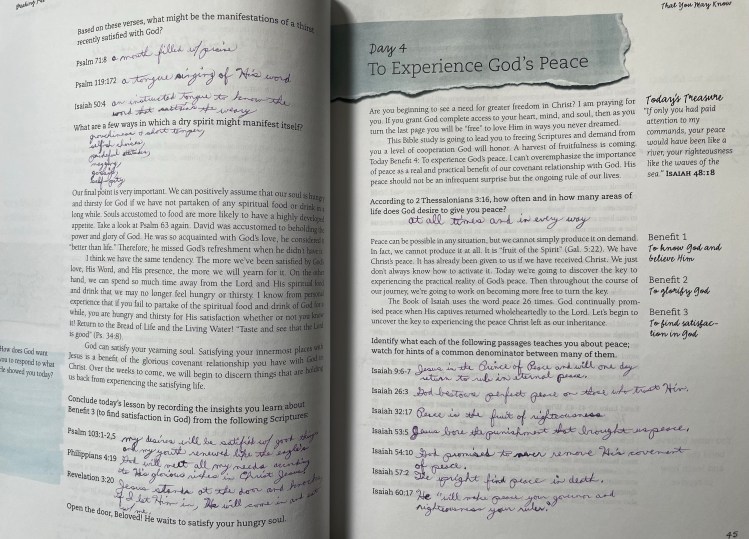 Breaking Free
Based on these verses, what might be the manifestations of a thirst
recently satisfied with God?
Psalm 71:8 a mouth filled w/ praise
Psalm 119:172 a tongue singing of His word
Isaiah 50:4 an instructed tongue to know the
word that sustains the weary
What are a few ways in which a dry spirit might manifest itself?
grouchiness, a short temper,
selfish choices,
gossip,
self-pity
Our final point is very important. We can positively assume that our soul is hungry
and thirsty for God if we have not partaken of any spiritual food or drink in a
long while. Souls accustomed to food are more likely to have a highly developed
appetite. Take a look at Psalm 63 again. David was accustomed to beholding the
power and glory of God. He was so acquainted with God's love, he considered it
"better than life." Therefore, he missed God's refreshment when he didn't have it.
I think we have the same tendency. The more we've been satisfied by God's
love, His Word, and His presence, the more we will yearn for it. On the other
hand, we can spend so much time away from the Lord and His spiritual food
and drink that we may no longer feel hungry or thirsty. I know from personal
experience that if you fail to partake of the spiritual food and drink of God for a
while, you are hungry and thirsty for His satisfaction whether or not you know
it! Return to the Bread of Life and the Living Water! "Taste and see that the Lord
is good" (Ps. 34:8).
God can satisfy your yearning soul. Satisfying your innermost places with
Jesus is a benefit of the glorious covenant relationship you have with God in
Christ. Over the weeks to come, we will begin to discern things that are holding
us back from experiencing the satisfying life.
How does God want
you to respond to what
He showed you today?
Conclude today's lesson by recording the insights you learn about
Benefit 3 (to find satisfaction in God) from the following Scriptures:
Psalm 103:1-2,5 my desires will be satisfied w/ good things
and my youth renewed like the eagle's
Philippians 4:19 God will meet all my needs according
to His glorious riches in Christ Jesus!
Revelation 3:20 Jesus stands at the door and knocks
if I let Him in, He will come in and eat
w/ me.
Open the door, Beloved! He waits to satisfy your hungry soul.
That You May Know
Day 4
To Experience God's Peace
Are you beginning to see a need for greater freedom in Christ? I am praying for
you. If you grant God complete access to your heart, mind, and soul, then as you
turn the last page you will be "free" to love Him in ways you never dreamed.
This Bible study is going to lead you to freeing Scriptures and demand from
you a level of cooperation God will honor. A harvest of fruitfulness is coming.
Today Benefit 4: To experience God's peace. I can't overemphasize the importance
of peace as a real and practical benefit of our covenant relationship with God. His
peace should not be an infrequent surprise but the ongoing rule of our lives.
Today's Treasure
"If only you had paid
attention to my
commands, your peace
would have been like a
river, your righteousness
like the waves of the
sea." ISAIAH 48:18
According to 2 Thessalonians 3:16, how often and in how many areas of
life does God desire to give you peace?
at all times and in every way
Peace can be possible in any situation, but we cannot simply produce it on demand.
In fact, we cannot produce it at all. It is "fruit of the Spirit" (Gal. 5:22). We have
Christ's peace. It has already been given to us if we have received Christ. We just
don't always know how to activate it. Today we're going to discover the key to
experiencing the practical reality of God's peace. Then throughout the course of
our journey, we're going to work on becoming more free to turn the key.
The Book of Isaiah uses the word peace 26 times. God continually prom-
ised peace when His captives returned wholeheartedly to the Lord. Let's begin to
uncover the key to experiencing the peace Christ left as our inheritance.
Benefit 1
To know God and
believe Him
Benefit 2
To glorify God
Benefit 3
To find satisfac-
tion in God
Identify what each of the following passages teaches you about peace;
watch for hints of a common denominator between many of them.
Isaiah 9:6-7 Jesus is the Prince of Peace and will one day
return to rule in eternal peace.
Isaiah 26:3 God bestows perfect peace on those who trust Him.
Isaiah 32:17 Peace is the fruit of righteousness
Isaiah 53:5 Jesus bore the punishment that brought us peace.
Isaiah 54:10 God promised to never remove His covenant
of peace.
Isaiah 57:2 The upright find peace in death.
Isaiah 60:17 He "will make peace your governor and
righteousness your ruler."
45